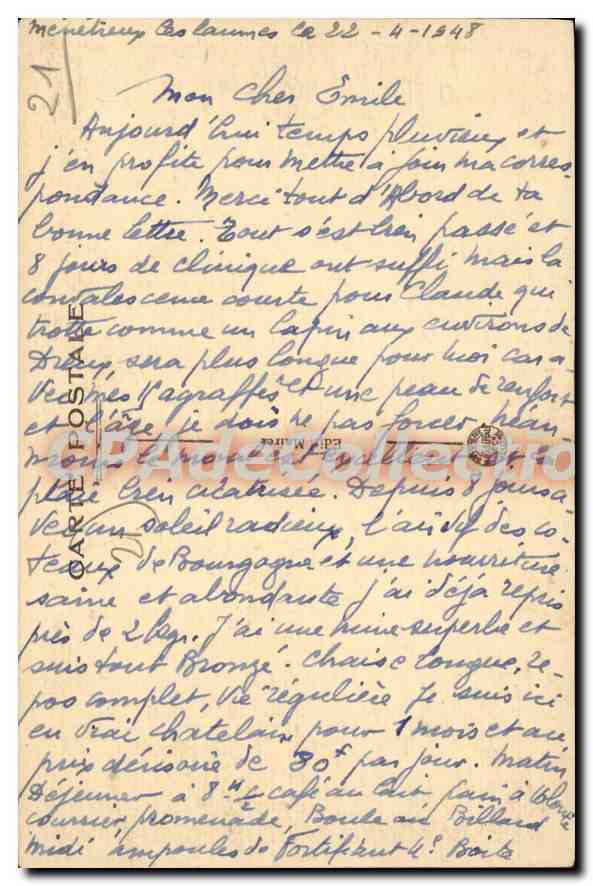 Ménétreux Les laumes Ce 22-4-1948
21
Mon Cher Emile
Aujourd'hui temps pluvieux et
j'en profite pour mettre à jour ma corres-
pondance. Merci tout d'Abord de ta
bonne lettre. Tout s'est bien passé et
8 jours de clinique ont suffi mais la
convalescence courte pour Claude qui
trotte comme un lapin aux environs de
Dreux, sera plus longue pour moi car a-
vec mes agraffes et une peau de renfort
et l'âge je dois ne pas forcer, néan
moins le moral est excellent et la
plaie bien cicatrisée. Depuis 8 jours a-
vec un soleil radieux, l'air vif des co-
teaux de Bourgogne et une nourriture
saine et abondante j'ai déjà repris
près de 2 kgr. J'ai une mine superbe et
suis tout Bronzé. Chaise longue, re-
pos complet, vie régulière je suis ici
en vrai chatelain pour 1 mois et au
prix dérisoire de 30f par jour. Matin
Déjeuner à 8 H café au lait, pain à
courrier, promenade, Boule au Billard
midi ampoules de Fortifiant
CARTE POSTALE
Edit. Mairet
21
CPAdeCollection